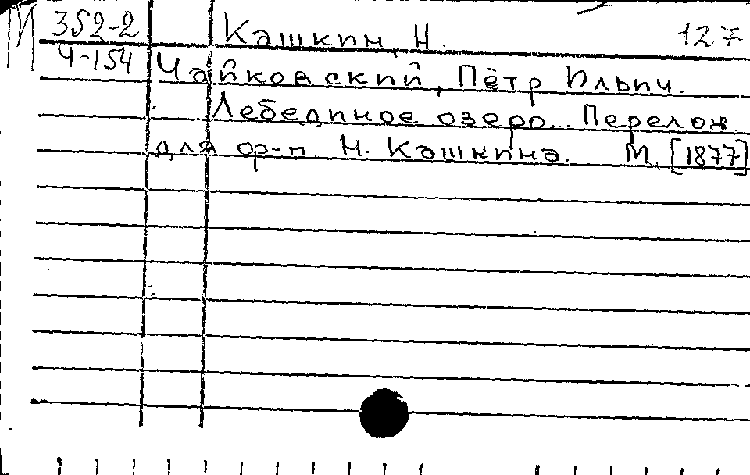 М 352-2 Кашкин, Н. 127
Ч-154 Чайковский, Пётр Ильич.
Лебединое озеро. Перелож
для ф-п Н. Кашкина. М. [1877]